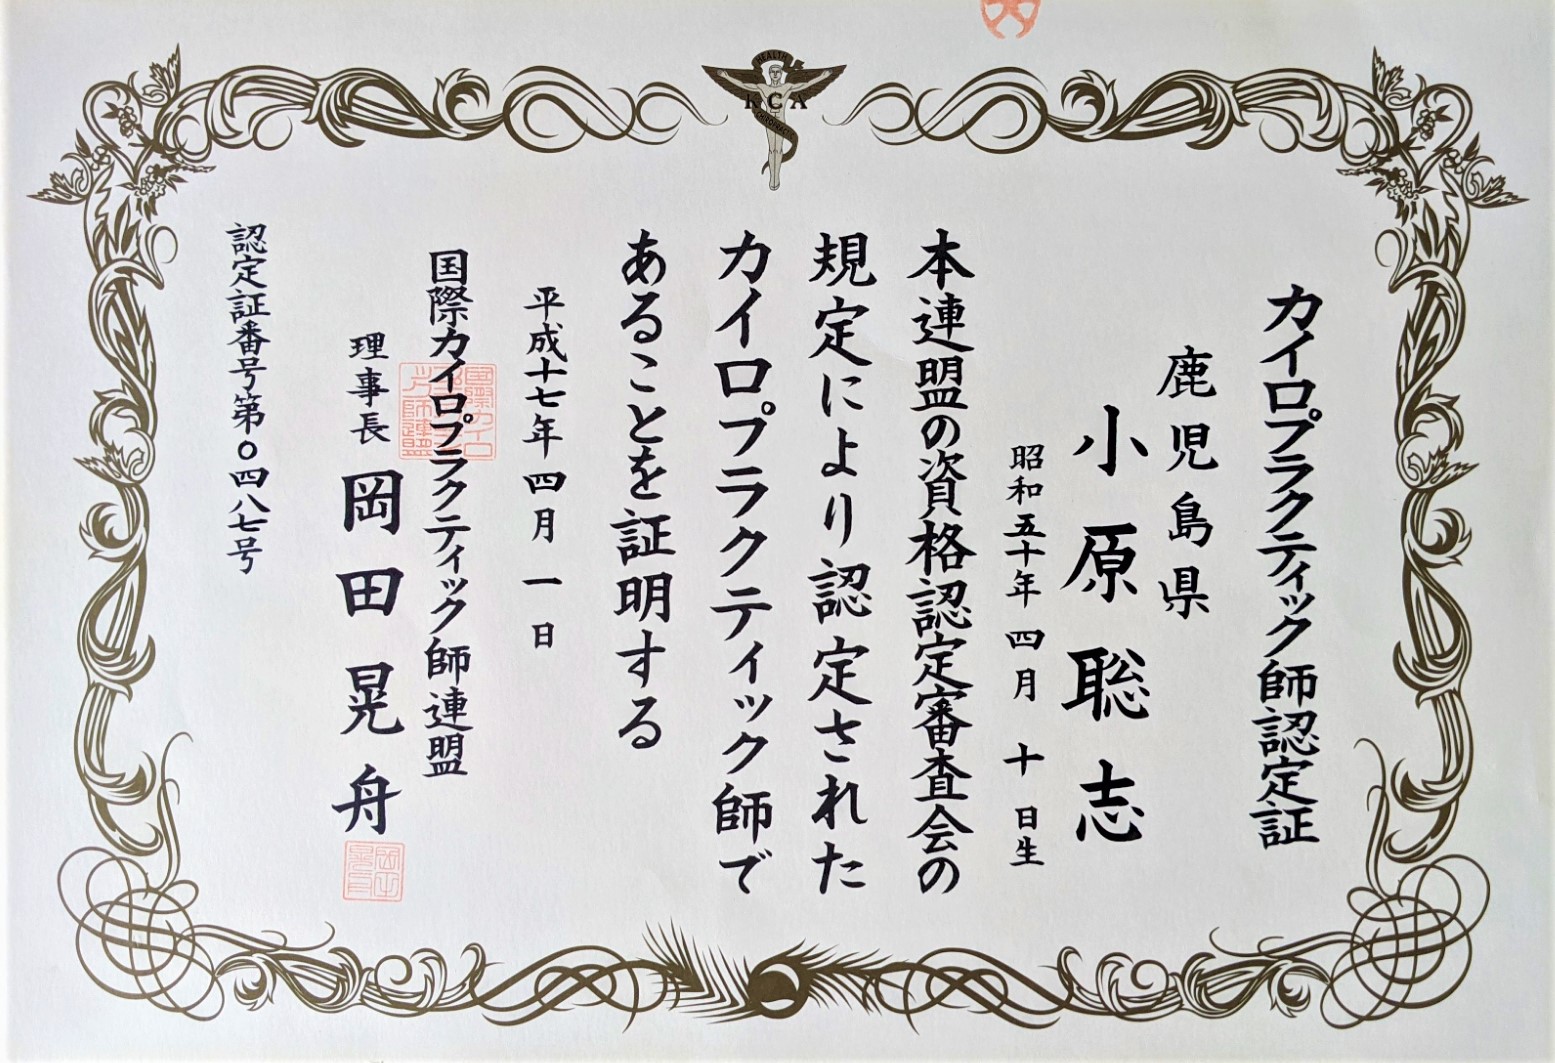 HEALTH
KCA
CHIROPRACTIC
カイロプラクティック師認定証
鹿児島県
小原聡志
昭和五十年四月十日生
本連盟の資格認定審査会の
規定により認定された
カイロプラクティック師で
あることを証明する
平成十七年四月一日
国際カイロプラクティック師連盟
理事長 岡田晃舟
認定証番号第〇四八七号